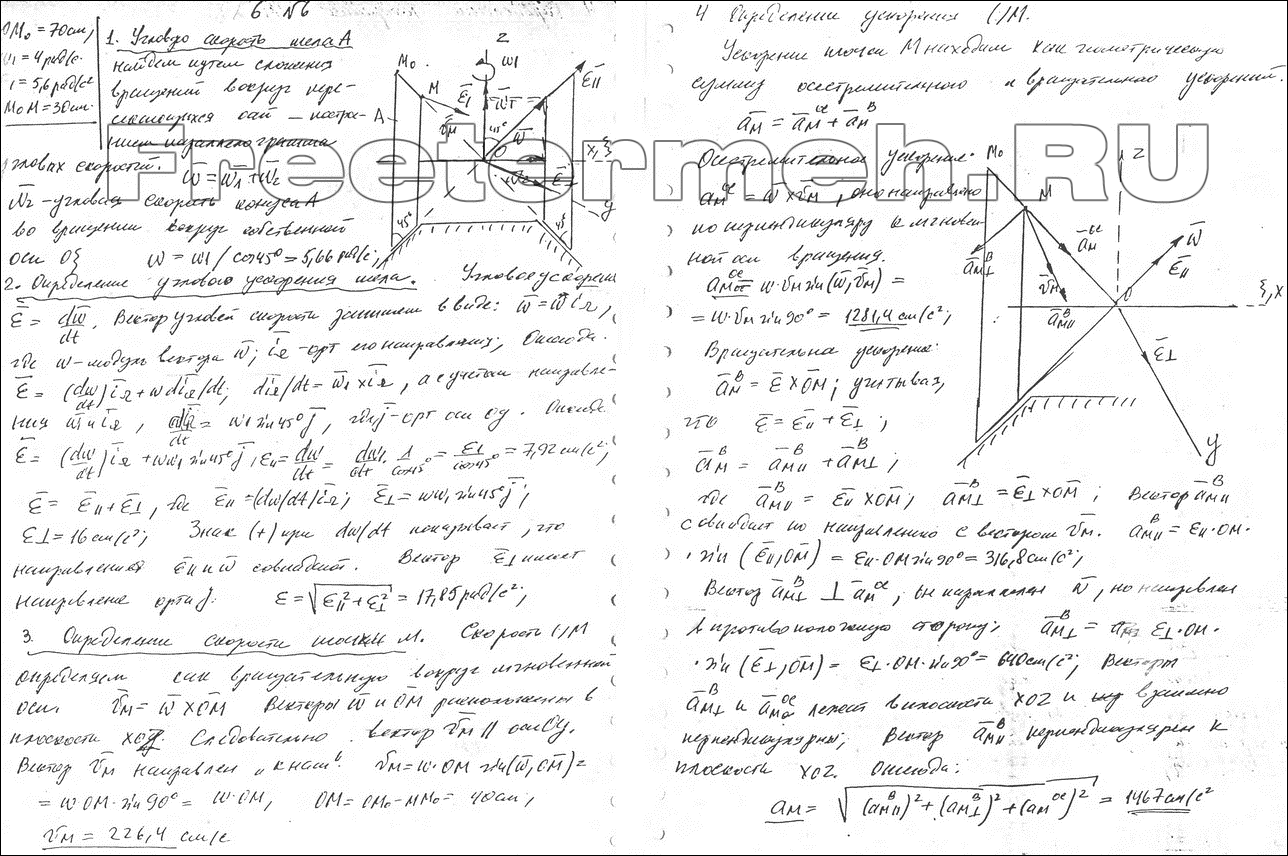 6. №6
OM₀ = 70см;
ω₁ = 4 рад/с
ε₁ = 5,6 рад/с²
M₀M = 30см.
1. Угловую скорость тела A
найдем путем сложения
вращений вокруг пере-
секающихся осей – построе-
нием параллелограмма
угловых скоростей. ω̄ = ω̄₁ + ω̄₂
ω̄₂ – угловая скорость конуса A
во вращении вокруг собственной
оси Oξ ω = ω₁ / cos45° = 5,66 рад/с;
M₀
M
A
z
ω₁
ε̄₁
ε̄||
v̄м
45°
ω̄
O
x, ξ
y
45°
45°
2. Определение углового ускорения тела. Угловое ускорен
ε̄ = dω̄/dt. Вектор угловой скорости запишем в виде: ω̄ = ω īΩ,
где ω – модуль вектора ω̄; īΩ – орт его направления; Отсюда.
ε̄ = (dω/dt) īΩ + ω dīΩ/dt; dīΩ/dt = ω̄₁ × īΩ, а с учетом направле-
ния ω̄₁ и īΩ, dīΩ/dt = ω₁ sin45° j̄, где j̄ – орт оси Oy. Отсюда
ε̄ = (dω/dt) īΩ + ωω₁ sin45° j̄; ε|| = dω/dt = dω₁/dt · 1/cos45° = ε₁/cos45° = 7,92 см/с²;
ε̄ = ε̄|| + ε̄⊥, где ε̄|| = (dω/dt) īΩ; ε̄⊥ = ωω₁ sin45° j̄;
ε⊥ = 16 см/с²; Знак (+) при dω/dt показывает, что
направления ε̄|| и ω̄ совпадают. Вектор ε̄⊥ имеет
направление орта j̄. ε = √(ε||² + ε⊥²) = 17,85 рад/с²;
3. Определение скорости точки M. Скорость (·)M
определяем как вращательную вокруг мгновенной
оси. v̄м = ω̄ × OM Векторы ω̄ и OM расположены в
плоскости xOz. Следовательно вектор v̄м || оси Oy.
Вектор v̄м направлен „к нам". vм = ω·OM sin(ω̄, OM) =
= ω·OM·sin90° = ω·OM, OM = OM₀ – MM₀ = 40см;
vм = 226,4 см/с
4 Определение ускорения (·)M.
Ускорение точки M находим как геометрическую
сумму осестремительного и вращательного ускорений
āм = āм^ос + āм^в
Осестремительное ускорение.
āм^ос = ω̄ × v̄м, оно направлено
по перпендикуляру к мгновен
ной оси вращения.
aм^ос = ω·vм sin(ω̄, v̄м) =
= ω·vм sin90° = 1281,4 см/с²;
Вращательное ускорение:
āм^в = ε̄ × OM; учитывая,
что ε̄ = ε̄|| + ε̄⊥;
āм^в = āм||^в + āм⊥^в;
M₀
M
z
āм^ос
āм⊥^в
v̄м
āм||^в
ω̄
ε̄||
O
ξ, x
ε̄⊥
y
где āм||^в = ε̄|| × OM; āм⊥^в = ε̄⊥ × OM; Вектор āм||^в
совпадает по направлению с вектором v̄м. aм||^в = ε||·OM·
· sin(ε̄||, OM) = ε||·OM sin90° = 316,8 см/с²;
Вектор āм⊥^в ⊥ āм^ос, он параллелен ω̄, но направлен
в противоположную сторону; aм⊥^в = ε⊥·OM·
· sin(ε̄⊥, OM) = ε⊥·OM·sin90° = 640 см/с²; Векторы
āм⊥^в и āм^ос лежат в плоскости xOz и взаимно
перпендикулярны; Вектор āм||^в перпендикулярен к
плоскости xOz. Отсюда:
aм = √((aм||^в)² + (aм⊥^в)² + (aм^ос)²) = 1467 см/с²
Freetermeh.RU